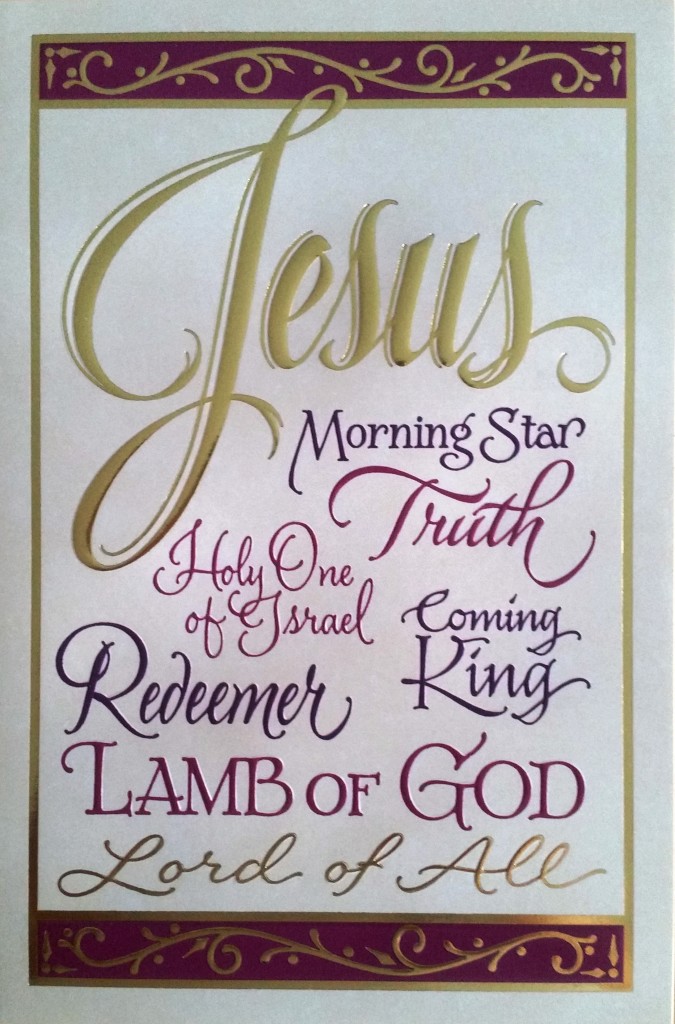 Jesus
Morning Star
Truth
Holy One
of Israel
Coming
King
Redeemer
LAMB OF GOD
Lord of All